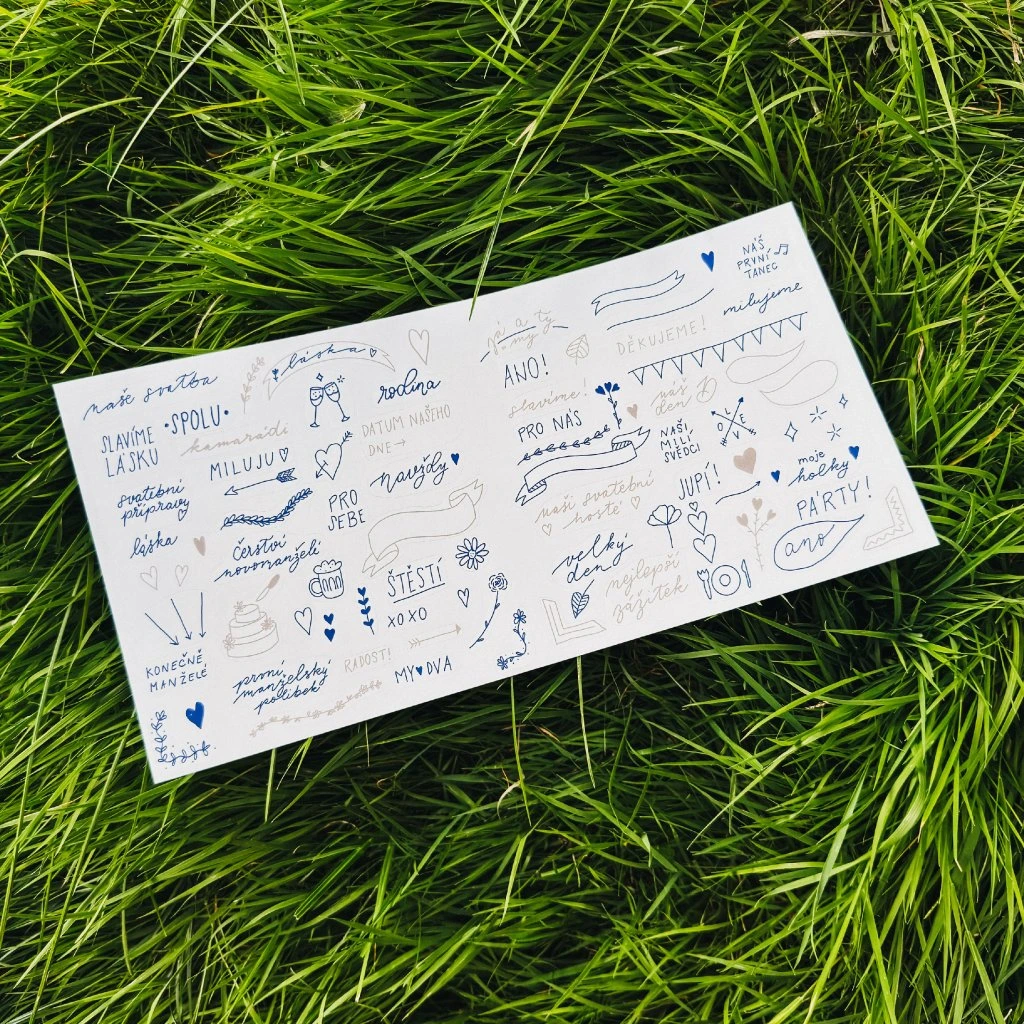 naše svatba
•SPOLU•
SLAVÍME
LÁSKU
kamarádi
láska
rodina
MILUJU
DATUM NAŠEHO
DNE
svatební
přípravy
navždy
PRO
SEBE
láska
čerství
novomanželé
ŠTĚSTÍ
XOXO
KONEČNĚ
MANŽELÉ
první
manželský
polibek
RADOST!
MY DVA
já a ty
= my
ANO!
DĚKUJEME!
NÁŠ
PRVNÍ
TANEC
milujeme
slavíme!
náš
den D
PRO NÁS
L O V E
NAŠI
MILÍ
SVĚDCI
naši svatební
hosté
JUPÍ!
moje
holky
PÁRTY!
velký
den
nejlepší
zážitek
ano